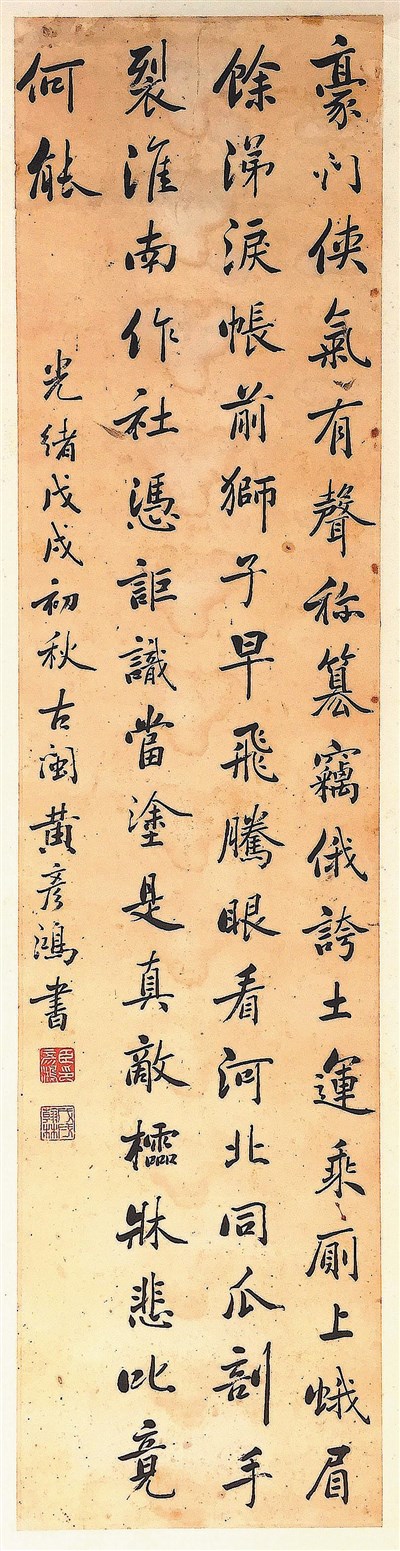 豪门俠氣有聲称篡竊俄誇土運乘廁上蛾眉
餘涕淚帳前獅子早飛騰眼看河北同瓜剖手
裂淮南作社憑詎識當塗是真敵櫺牀悲叱竟
何能
光緒戊戌初秋古閩黄彦鴻書
戊戌翰林